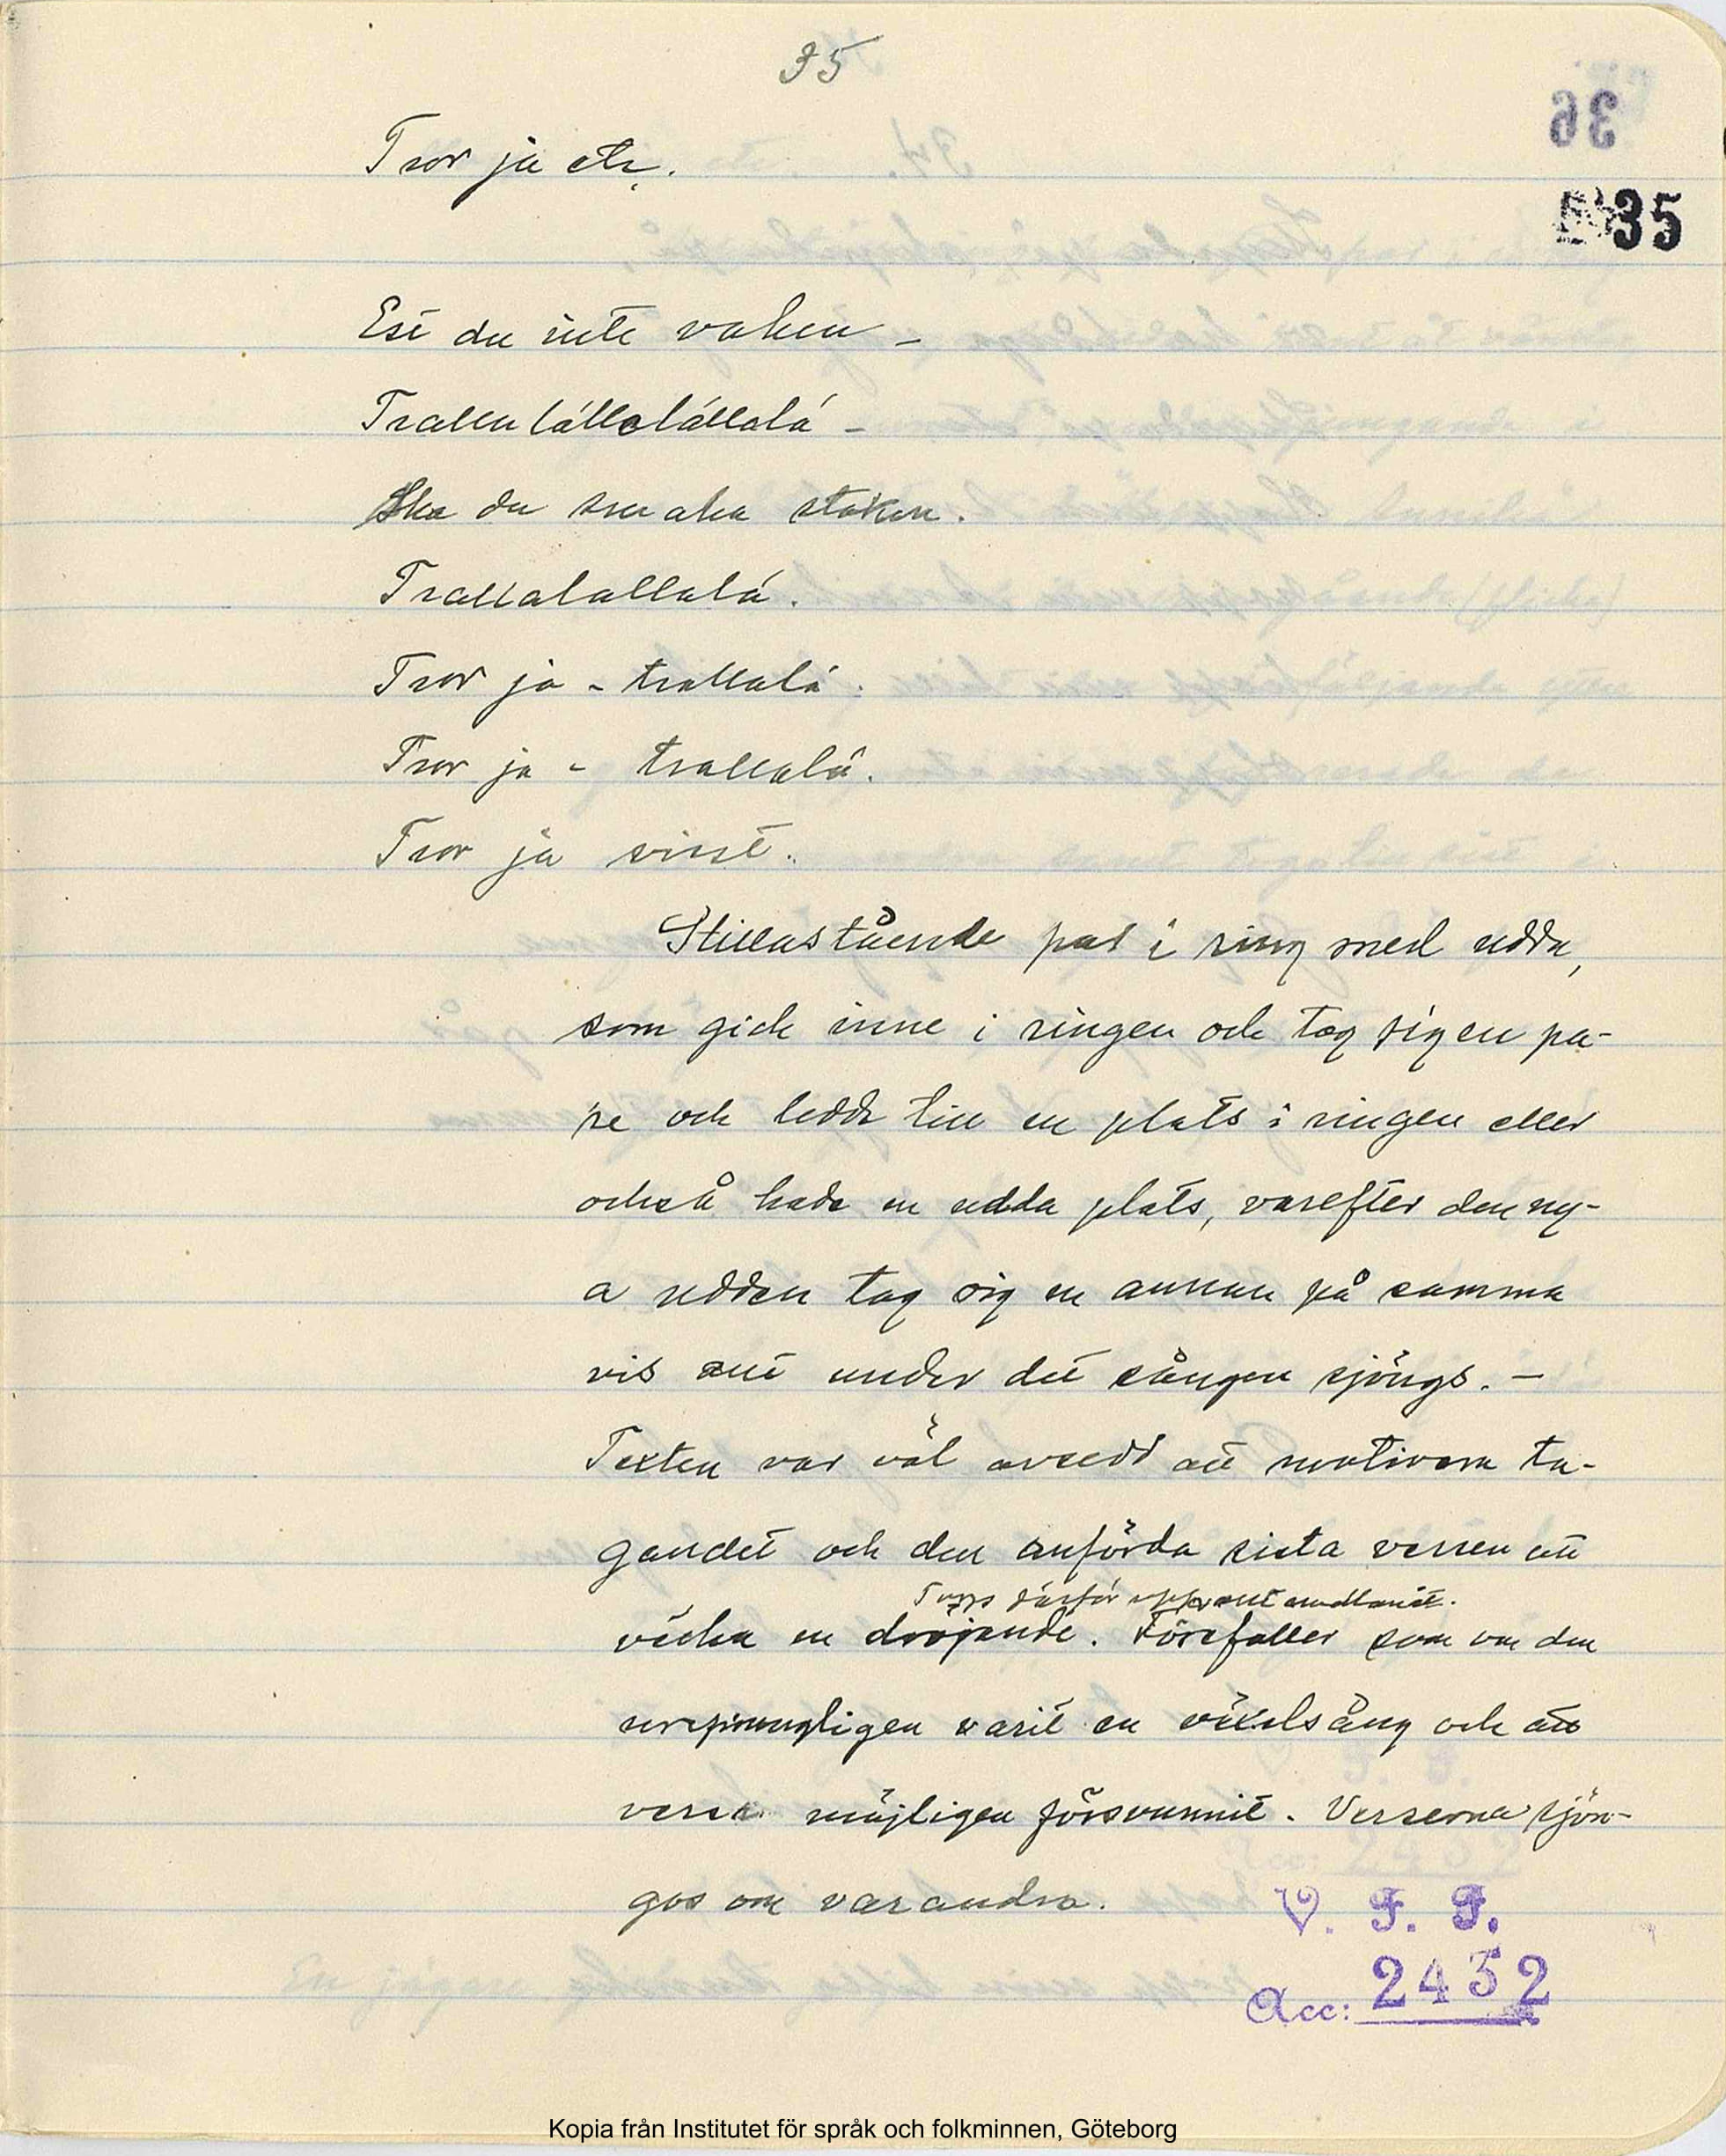 35
36
35
Tror ja etc.
Est du inte vaken –
Trallalállalállalá –
Ska du smaka staken.
Trallalallalá.
Tror ja – trallalá.
Tror ja – trallalá.
Tror ja visst.
Stillastående par i ring med udda,
som gick inne i ringen och tog sig en pa-
re och ledde till en plats i ringen eller
också hade en udda plats, varefter den ny-
a udden tog sig en annan på samma
vis allt under det sången sjöngs. –
Texten var väl avsedd att motivera ta-
gandet och den anförda sista versen att
Togs därför allt emellanåt.
väcka en dröjande. Förefaller som om den
ursprungligen varit en växelsång och att
verser möjligen försvunnit. Verserna sjön-
gos om varandra.
V. F. F.
Acc: 2432
Kopia från Institutet för språk och folkminnen, Göteborg